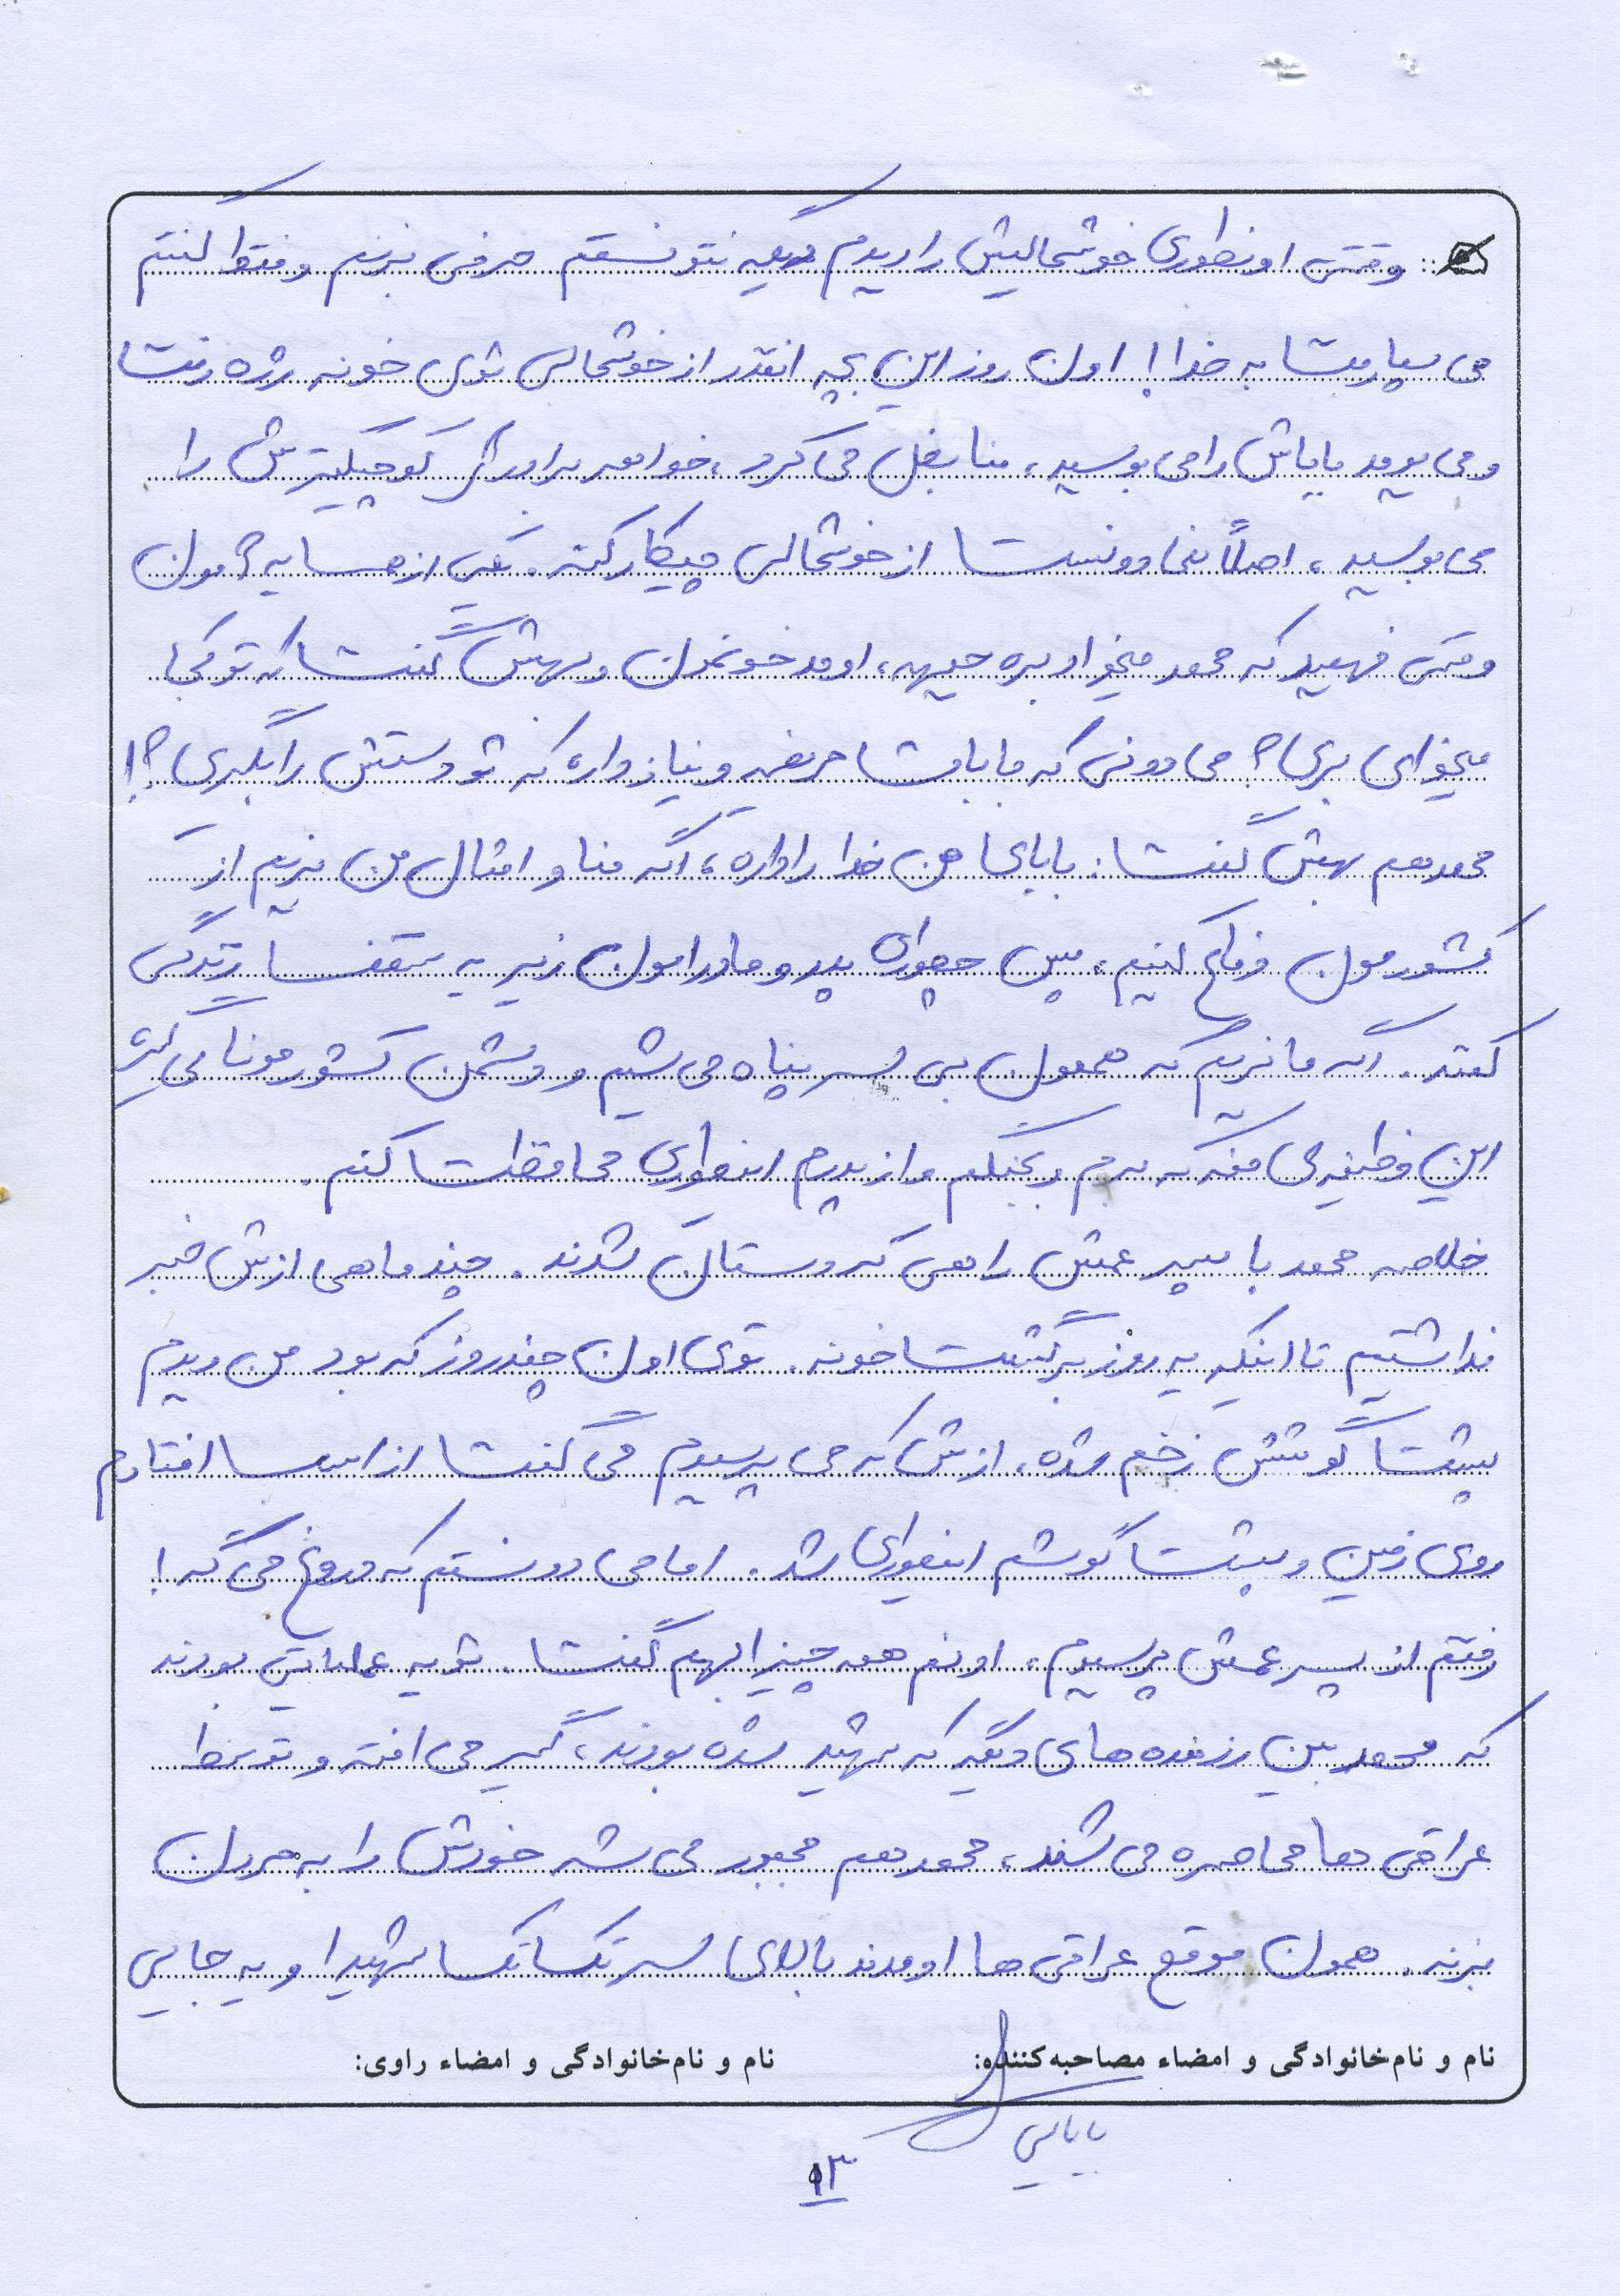 وقتی اونطوری خوشحالیش را دیدم دیگه نتونستم حرفی بزنم و فقط گفتم
می سپارمت به خدا! اون روز این بچه انقدر از خوشحالی توی خونه رژه رفت
و می یومد باباش را می بوسید، منا بغل می کرد، خواهر برادرای کوچیکترش را
می بوسید، اصلاً نمی دونست از خوشحالی چیکار کنه. یکی از همسایه هامون
وقتی فهمید که محمد میخواد بره جبهه، اومد خونمون و بهش گفت که تو کجا
میخوای بری؟ می دونی که بابات مریضه و نیاز داره که تو دستش را بگیری؟!
محمد هم بهش گفت: بابای من خدا را داره، اگه منا و امثال من نریم از
کشورمون دفاع کنیم، پس چطوری پدر و مادرامون زیر یه سقف زندگی
کنند. اگه ما نریم که هممون بی سر پناه می شیم و دشمن کشورمونا می گیره
این وظیفه ی منه که برم و بجنگم و از پدرم اینطوری محافظت کنم.
خلاصه محمد با پسر عمش راهی کردستان شدند. چند ماهی ازش خبر
نداشتیم تا اینکه یه روز برگشت خونه. توی اون چند روز که بود من دیدم
پشت گوشش زخم شده، ازش که می پرسیدم می گفت از اسب افتادم
روی زمین و پشت گوشم اینطوری شد. اما می دونستم که دروغ می گه!
رفتم از پسر عمش پرسیدم، اونم همه چیزا بهم گفت. تو یه عملیاتی بودند
که محمد بین رزمنده های دیگه که شهید شده بودند، گیر می افته و توسط
عراقی ها محاصره می شند، محمد هم مجبور می شه خودش را به مردن
بزنه. همون موقع عراقی ها اومدند بالای سر تک تک شهدا و یه جایی
نام و نام‌خانوادگی و امضاء مصاحبه‌کننده:
نام و نام‌خانوادگی و امضاء راوی:
بابایی
۱۳